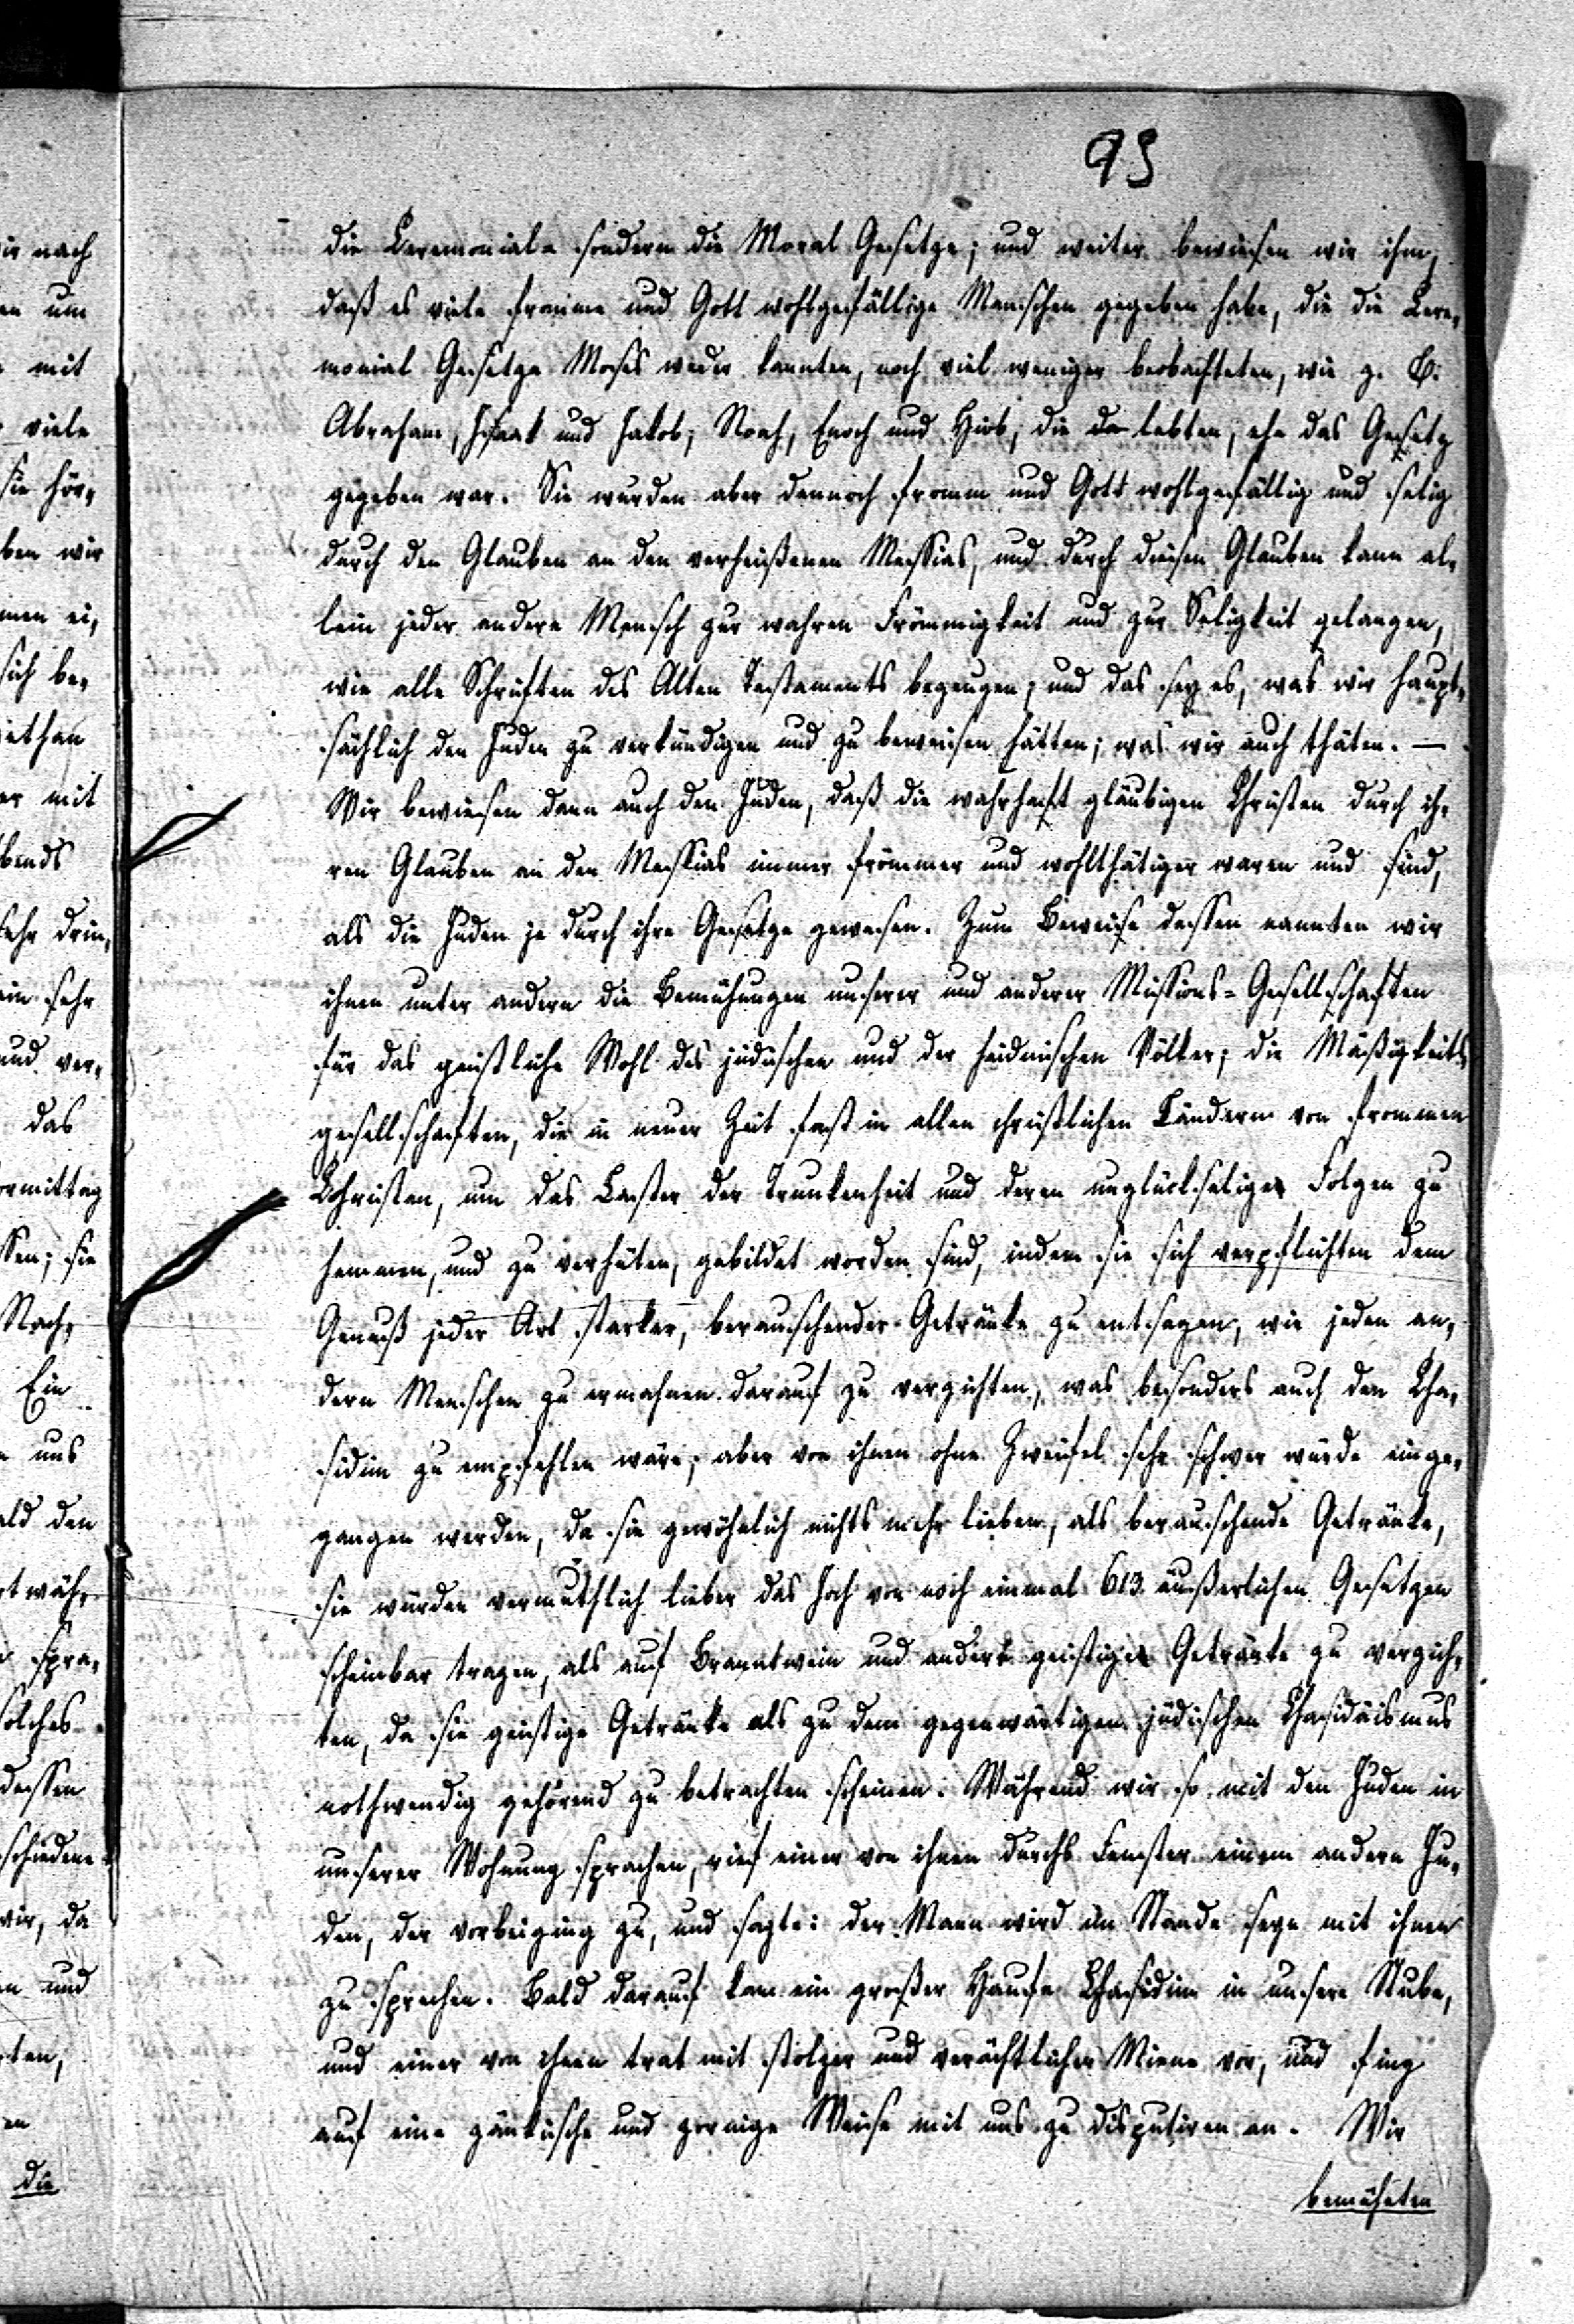 93
die Ceremonial- sondern die Moral Gesetze; und weiter bewiesen wir ihm,
daß es viele fromme und Gott wohlgefällige Menschen gegeben habe, die die Cere-
monial Gesetze Moses weder kannten, noch viel weniger beobachteten, wie z. B.
Abraham, Isaak und Jakob, Noah, Enoch und Hiob, die da lebten, ehe das Gesetz
gegeben war. Sie wurden aber dennoch fromm und Gott wohlgefällig und selig
durch den Glauben an den verheißenen Messias, und durch diesen Glauben kann al-
lein jeder andere Mensch zur wahren Frömmigkeit und zur Seligkeit gelangen,
wie alle Schriften des Alten Testaments bezeugen; und das sey es, was wir haupt-
sächlich den Juden zu verkündigen und zu beweisen hätten; was wir auch thäten. —
Wir bewiesen dann auch den Juden, daß die wahrhaft gläubigen Christen durch ih-
ren Glauben an den Messias immer frömmer und wohlthätiger waren und sind,
als die Juden je durch ihre Gesetze gewesen. Zum Beweise dessen nannten wir
ihnen unter andern die Bemühungen unserer und anderer Missions-Gesellschaften
für das geistliche Wohl des jüdischen und der heidnischen Völker; die Mäßigkeits
gesellschaften, die in neuer Zeit fast in allen christlichen Ländern von frommen
Christen, um das Laster der Trunkenheit und deren unglückselige Folgen zu
hemmen, und zu verhüten, gebildet worden sind, indem sie sich verpflichten dem
Genuß jeder Art starker, berauschender Getränke zu entsagen, wie jeden an-
dern Menschen zu ermahnen darauf zu verzichten, was besonders auch den Cha-
sidim zu empfehlen wäre; aber von ihnen ohne Zweifel sehr schwer würde einge-
gangen werden, da sie gewöhnlich nichts mehr lieben, als berauschende Getränke,
sie würden vermuthlich lieber das Joch von noch einmal 613 äußerlichen Gesetzen
scheinbar tragen, als auf Branntwein und andere geistige Getränke zu verzich-
ten, da sie geistige Getränke als zu dem gegenwärtigen jüdischen Chasidäismus
nothwendig gehörend zu betrachten scheinen. Während wir so mit den Juden in
unserer Wohnung sprachen, rief einer von ihnen durchs Fenster einem andern Ju-
den, der vorbeiging zu, und sagte: der Mann wird im Stande seyn mit ihnen
zu sprechen. Bald darauf kam ein großer Haufe Chasidim in unsere Stube,
und einer von ihnen trat mit stolzer und verächtlicher Miene vor, und fing
auf eine zänkische und zornige Weise mit uns zu disputiren an. Wir
bemühten